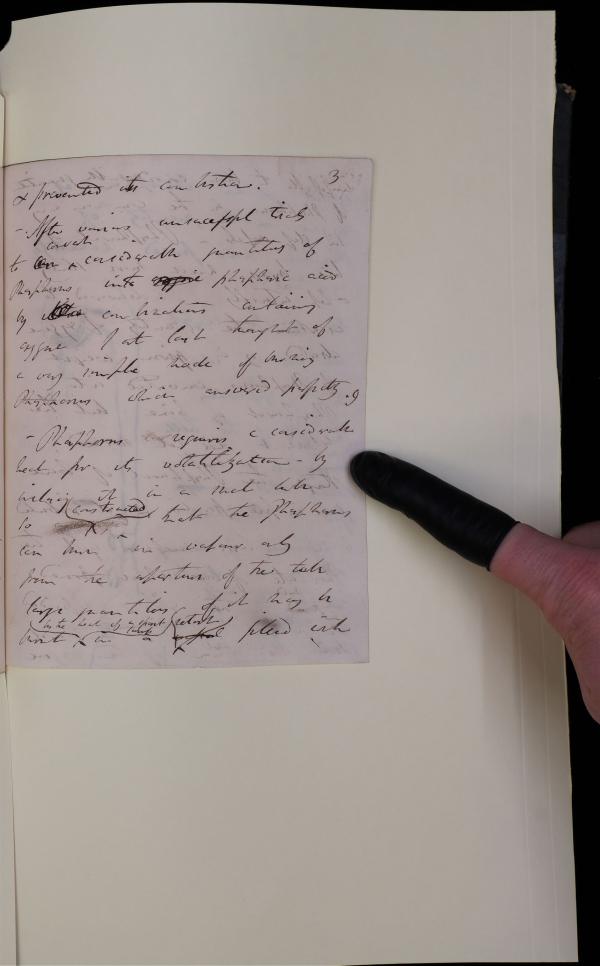 3
& prevented its combustion.
- After various unsuccessful trials
convert
to considerable quantities of
Phosphorus into phosphoric acid
by combinations containing
oxygene I at last thought of
a very simple mode of burning
Phosphorus which answered perfectly.
- Phosphorus requires a considerable
heat for its volatilization - by
it in a small tube
constructed
so that the Phosphorus
can burn in vapour only
from the aperture of the tube
large quantities of it may be
by the heat of a spirit lamp
retort
burnt in a filled with